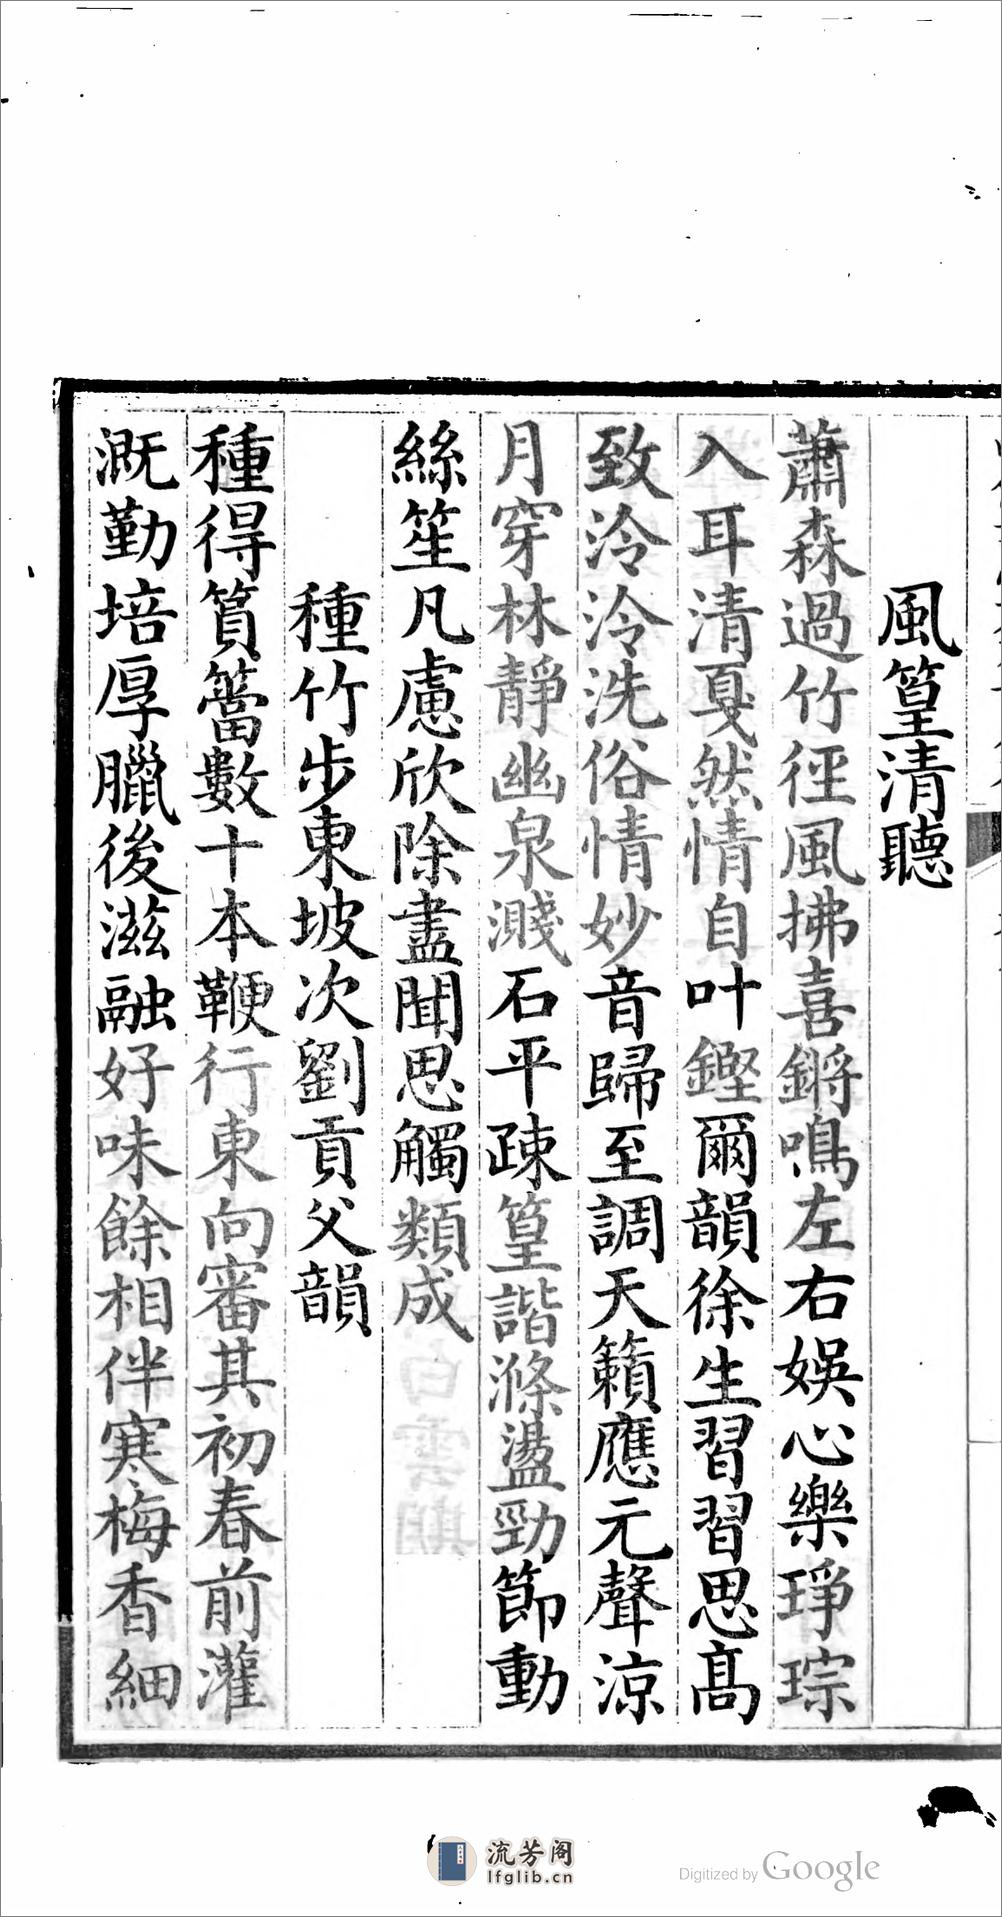 風篁清聽
蕭森過竹徑風拂喜鏘鳴左右娛心樂琤琮
入耳清戛然情自叶鏗爾韻徐生習習思髙
致泠泠洗俗情妙音歸至調天籟應元聲涼
月穿林靜幽泉濺石平疎篁諧滌盪勁節動
絲笙凡慮欣除盡聞思觸類成
種竹步東坡次劉貢父韻
種得篔簹數十本鞭行東向審其初春前灌
溉勤培厚臘後滋融好味餘相伴寒梅香細
流芳阁
lfglib.cn
Digitized by Google